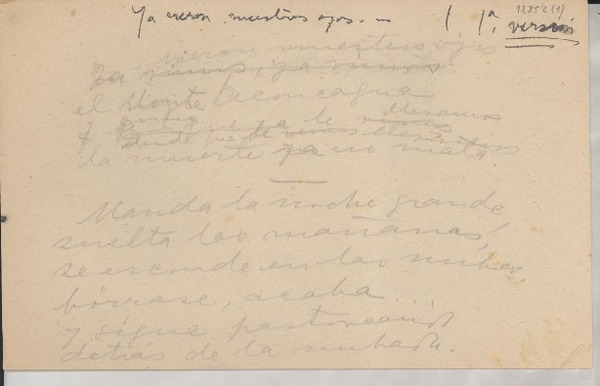 Ya vieron nuestros ojos. — ( 1ª. versión
12852 (1)
vieron nuestros ojos
Ya vimos, ya vimos
el Monte Aconcagua
y porque le llevamos
Desde que le vimos
la muerte ya no mata.
Manda la noche grande,
suelta las mañanas,
se esconde en las nubes,
bórrase, acaba...
y sigue pastoreando
detrás de la nubada.